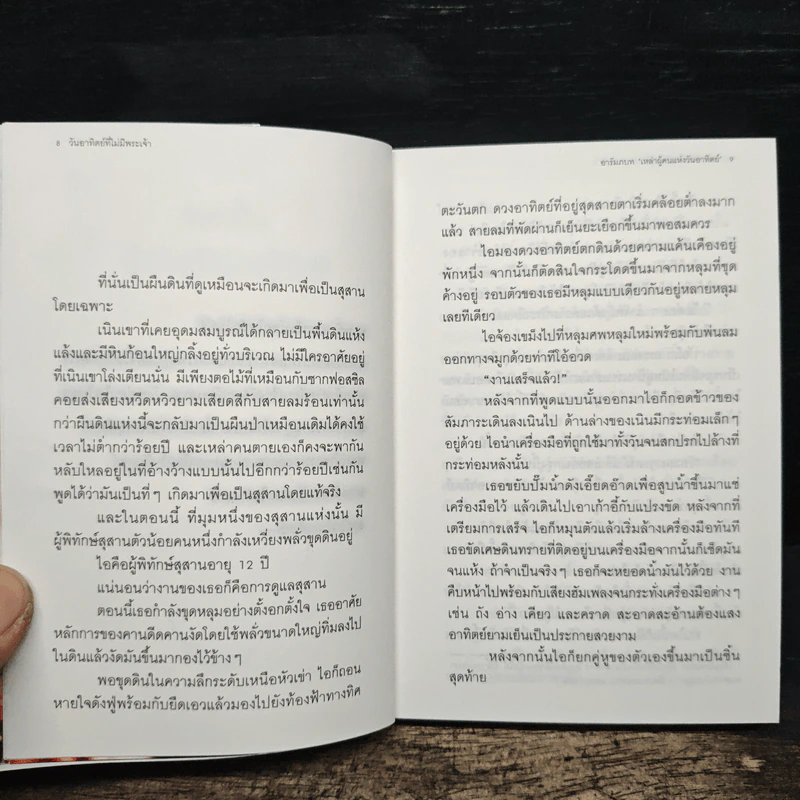 8 วันอาทิตย์ที่ไม่มีพระเจ้า
ที่นั่นเป็นผืนดินที่ดูเหมือนจะเกิดมาเพื่อเป็นสุสาน
โดยเฉพาะ
เนินเขาที่เคยอุดมสมบูรณ์ได้กลายเป็นพื้นดินแห้ง
แล้งและมีหินก้อนใหญ่กลิ้งอยู่ทั่วบริเวณ ไม่มีใครอาศัยอยู่
ที่เนินเขาโล่งเตียนนั่น มีเพียงตอไม้ที่เหมือนกับซากฟอสซิล
คอยส่งเสียงหวีดหวิวยามเสียดสีกับสายลมร้อนเท่านั้น
กว่าผืนดินแห่งนี้จะกลับมาเป็นผืนป่าเหมือนเดิมได้คงใช้
เวลาไม่ต่ำกว่าร้อยปี และเหล่าคนตายเองก็คงจะพากัน
หลับใหลอยู่ในที่อ้างว้างแบบนั้นไปอีกกว่าร้อยปีเช่นกัน
พูดได้ว่ามันเป็นที่ๆ เกิดมาเพื่อเป็นสุสานโดยแท้จริง
และในตอนนี้ ที่มุมหนึ่งของสุสานแห่งนั้น มี
ผู้พิทักษ์สุสานตัวน้อยคนหนึ่งกำลังเหวี่ยงพลั่วขุดดินอยู่
ไอคือผู้พิทักษ์สุสานอายุ 12 ปี
แน่นอนว่างานของเธอก็คือการดูแลสุสาน
ตอนนี้เธอกำลังขุดหลุมอย่างตั้งอกตั้งใจ เธออาศัย
หลักการของคานดีดคานงัดโดยใช้พลั่วขนาดใหญ่ทิ่มลงไป
ในดินแล้วงัดมันขึ้นมากองไว้ข้างๆ
พอขุดดินในความลึกระดับเหนือหัวเข่า ไอก็ถอน
หายใจดังฟู่พร้อมกับยืดเอวแล้วมองไปยังท้องฟ้าทางทิศ
อารัมภบท 'เหล่าผู้คนแห่งวันอาทิตย์' 9
ตะวันตก ดวงอาทิตย์ที่อยู่สุดสายตาเริ่มคล้อยต่ำลงมาก
แล้ว สายลมที่พัดผ่านก็เย็นยะเยือกขึ้นมาพอสมควร
ไอมองดวงอาทิตย์ตกดินด้วยความแค้นเคืองอยู่
พักหนึ่ง จากนั้นก็ตัดสินใจกระโดดขึ้นมาจากหลุมที่ขุด
ค้างอยู่ รอบตัวของเธอมีหลุมแบบเดียวกันอยู่หลายหลุม
เลยทีเดียว
ไอจ้องเขม็งไปที่หลุมศพหลุมใหม่พร้อมกับพ่นลม
ออกทางจมูกด้วยท่าทีโอ้อวด
"งานเสร็จแล้ว!"
หลังจากที่พูดแบบนั้นออกมาไอก็กอดข้าวของ
สัมภาระเดินลงเนินไป ด้านล่างของเนินมีกระท่อมเล็กๆ
อยู่ด้วย ไอนำเครื่องมือที่ถูกใช้มาทั้งวันจนสกปรกไปล้างที่
กระท่อมหลังนั้น
เธอขยับปั๊มน้ำดังเอี๊ยดอ๊าดเพื่อสูบน้ำขึ้นมาแช่
เครื่องมือไว้ แล้วเดินไปเอาเก้าอี้กับแปรงขัด หลังจากที่
เตรียมการเสร็จ ไอก็หมุนตัวแล้วเริ่มล้างเครื่องมือทันที
เธอขัดเศษดินทรายที่ติดอยู่บนเครื่องมือจากนั้นก็เช็ดมัน
จนแห้ง ถ้าจำเป็นจริงๆ เธอก็จะหยอดน้ำมันไว้ด้วย งาน
คืบหน้าไปพร้อมกับเสียงฮัมเพลงจนกระทั่งเครื่องมือต่างๆ
เช่น ถัง อ่าง เคียว และคราด สะอาดสะอ้านต้องแสง
อาทิตย์ยามเย็นเป็นประกายสวยงาม
หลังจากนั้นไอก็ยกคู่หูของตัวเองขึ้นมาเป็นชิ้น
สุดท้าย